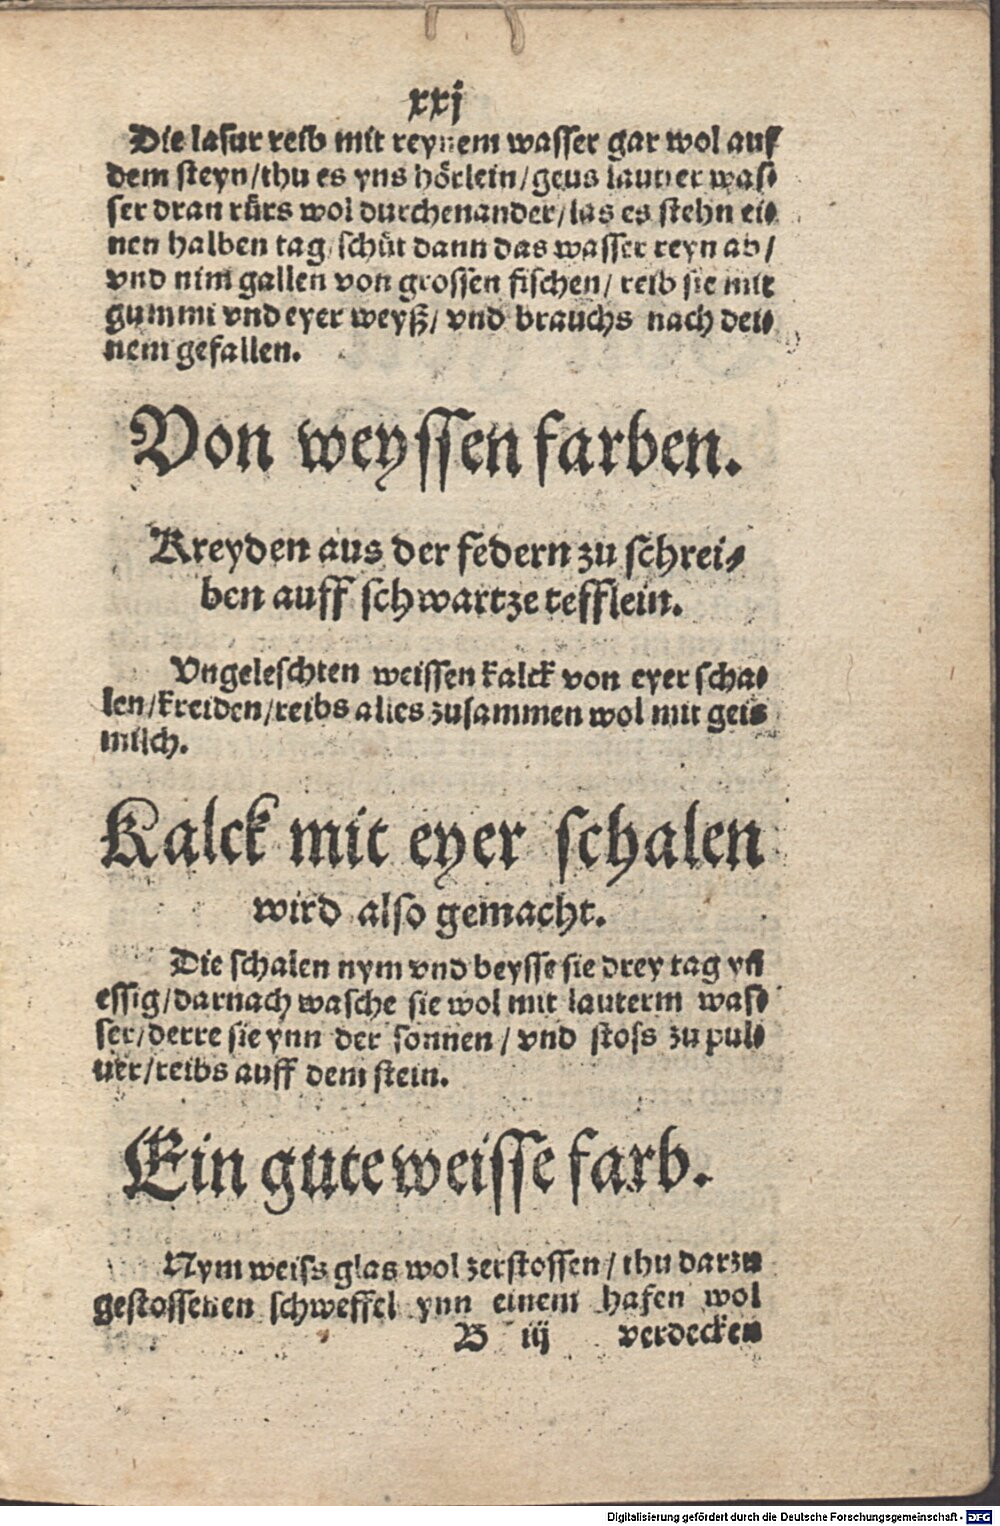 xxj
Die lasur reib mit reynem wasser gar wol auf
dem steyn/thu es yns hörlein/geus lauter was⸗
ser dran rürs wol durchenander/las es stehn ei⸗
nen halben tag/schüt dann das wasser reyn ab/
vnd nim gallen von grossen fischen/ reib sie mit
gummi vnd eyer weyß/ vnd brauchs nach dei⸗
nem gefallen.
Von weyssen farben.
Kreyden aus der federn zu schrei⸗
ben auff schwartze tefflein.
Vngeleschten weissen kalck von eyer scha⸗
len/kreiden/reibs alles zusammen wol mit geis
milch.
Kalck mit eyer schalen
wird also gemacht.
Die schalen nym vnd beysse sie drey tag yn
essig/darnach wasche sie wol mit lauterm was⸗
ser/derre sie ynn der sonnen/ vnd stoss zu pul⸗
uer/reibs auff dem stein.
Ein gute weisse farb.
Nym weiss glas wol zerstossen/ thu darzu
gestossenen schweffel ynn einem hafen wol
B iij verdecken
Digitalisierung gefördert durch die Deutsche Forschungsgemeinschaft - DFG